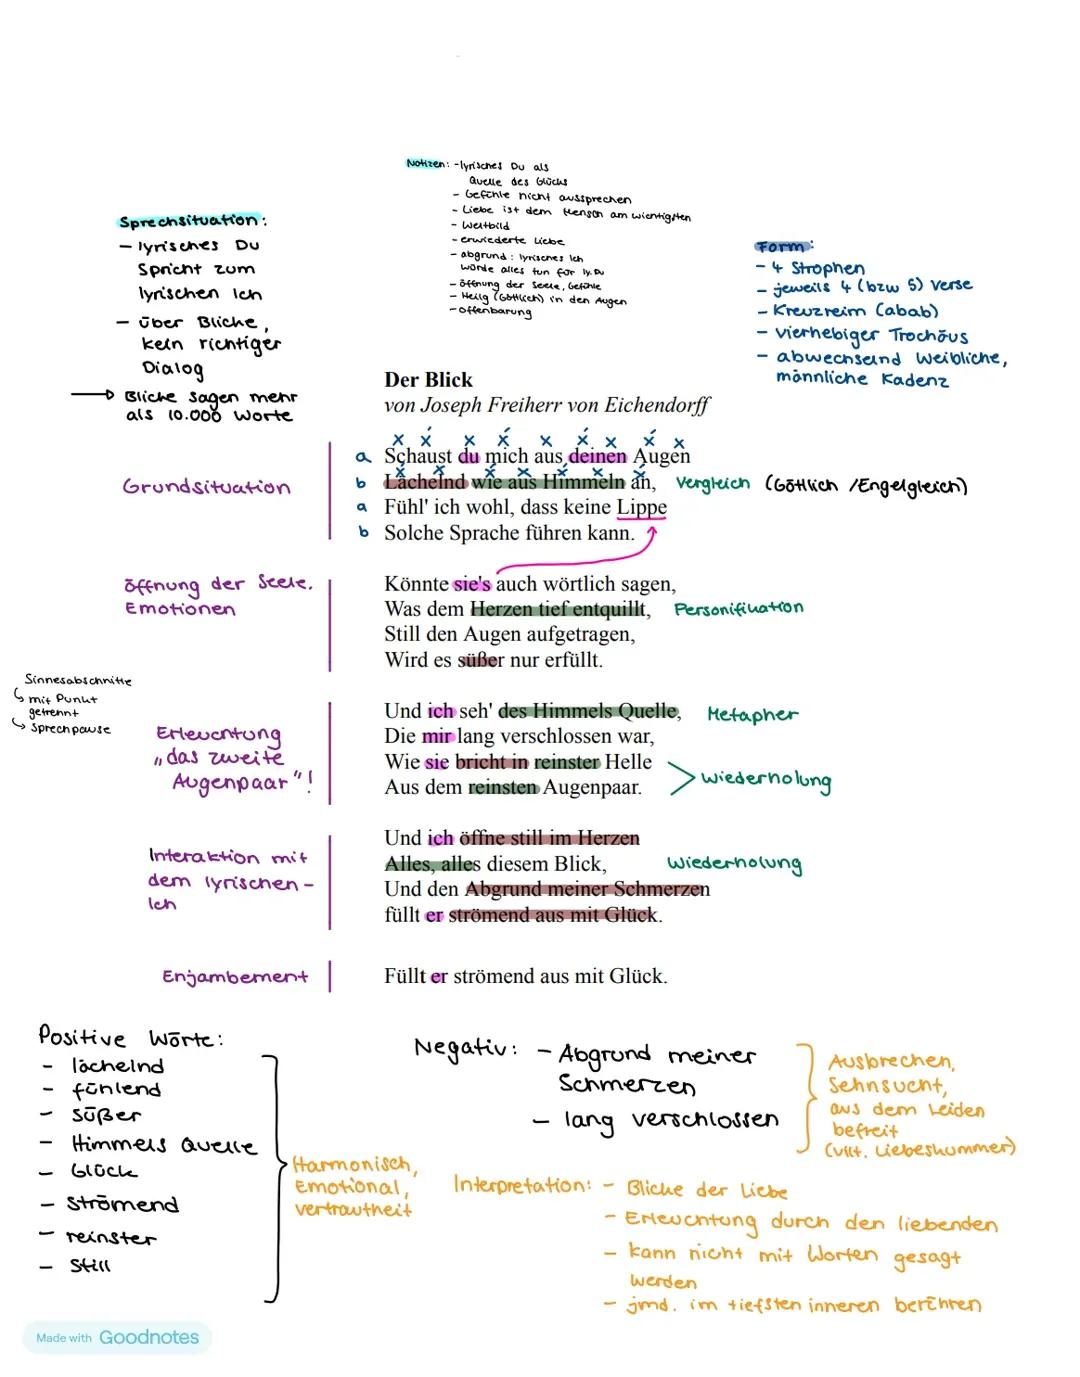 Notizen: - lyrisches Du als
Quelle des Glücks
- Gefühle nicht aussprechen
- Liebe ist dem Mensch am wichtigsten
- Weltbild
- erwiederte Liebe
- abgrund: lyrisches Ich
würde alles tun für ly. Du
- öffnung der Seele, Gefühle
- Heilig (Göttlich) in den Augen
- offenbarung
Sprechsituation:
- lyrisches Du
Spricht zum
lyrischen Ich
- über Blicke,
kein richtiger
Dialog
→ Blicke sagen mehr
als 10.000 Worte
Form:
- 4 Strophen
- jeweils 4 (bzw 5) Verse
- Kreuzreim (abab)
- vierhebiger Trochäus
- abwechselnd Weibliche,
männliche Kadenz
Der Blick
von Joseph Freiherr von Eichendorff
x x x x x x x x x
a Schaust du mich aus deinen Augen
x x x x x x x
b Lächelnd wie aus Himmeln an, Vergleich (Göttlich /Engelgleich)
Grundsituation
a Fühl' ich wohl, dass keine Lippe
b Solche Sprache führen kann.
öffnung der Seele,
Emotionen
Könnte sie's auch wörtlich sagen,
Was dem Herzen tief entquillt, Personifikation
Still den Augen aufgetragen,
Wird es süßer nur erfüllt.
Sinnesabschnitte
↳ mit Punkt
getrennt
↳ Sprechpause
Erleuchtung
„das zweite
Augenpaar"!
Und ich seh' des Himmels Quelle, Metapher
Die mir lang verschlossen war,
Wie sie bricht in reinster Helle
Aus dem reinsten Augenpaar.
> Wiederholung
Interaktion mit
dem lyrischen-
Ich
Und ich öffne still im Herzen
Alles, alles diesem Blick, Wiederholung
Und den Abgrund meiner Schmerzen
füllt er strömend aus mit Glück.
Enjambement
Füllt er strömend aus mit Glück.
Positive Wörte:
- lächelnd
- fühlend
- süßer
- Himmels Quelle
- Glück
- Strömend
- reinster
- Still
Harmonisch,
Emotional,
vertrautheit
Negativ: - Abgrund meiner
Schmerzen
- lang verschlossen
Ausbrechen,
Sehnsucht,
aus dem Leiden
befreit
(vllt. Liebeskummer)
Interpretation: - Blicke der Liebe
- Erleuchtung durch den liebenden
- kann nicht mit Worten gesagt
werden
- jmd. im tiefsten inneren berühren
Made with Goodnotes